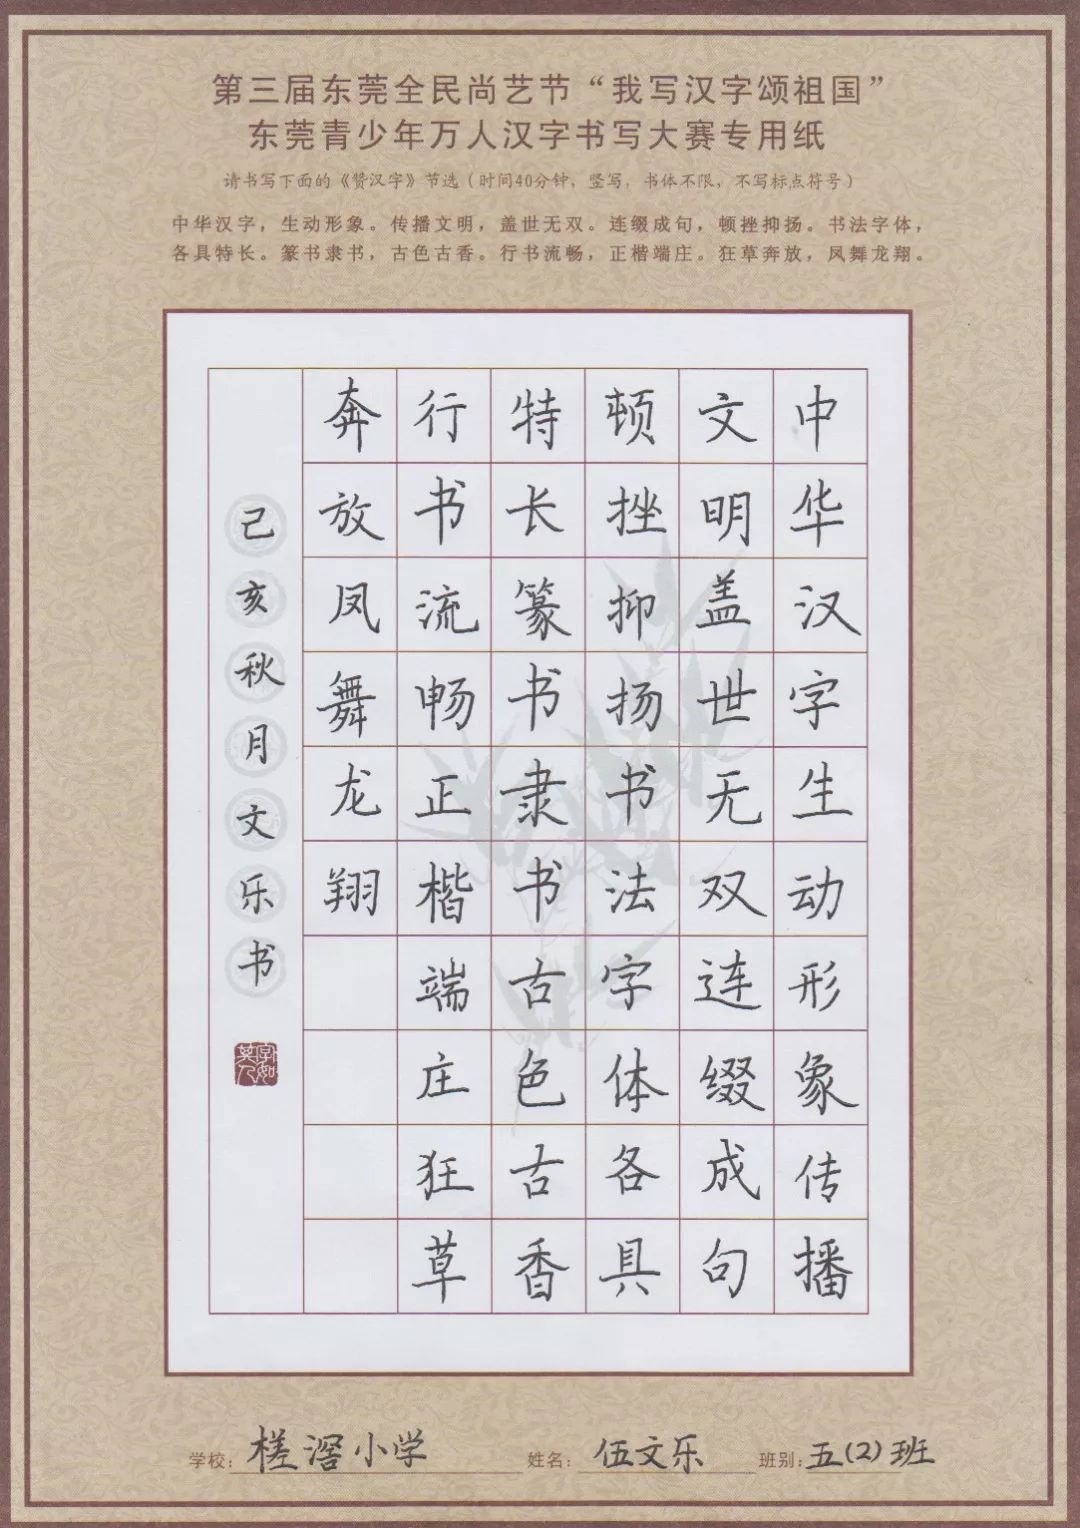 第三届东莞全民尚艺节“我写汉字颂祖国”
东莞青少年万人汉字书写大赛专用纸
请书写下面的《赞汉字》节选（时间40分钟，竖写，书体不限，不写标点符号）
中华汉字，生动形象。传播文明，盖世无双。连缀成句，顿挫抑扬。书法字体，
各具特长。篆书隶书，古色古香。行书流畅，正楷端庄。狂草奔放，凤舞龙翔。
中华汉字生动形象传播
文明盖世无双连缀成句
顿挫抑扬书法字体各具
特长篆书隶书古色古香
行书流畅正楷端庄狂草
奔放凤舞龙翔
己亥秋月文乐书
学校：槎滘小学 姓名：伍文乐 班别：五(2)班